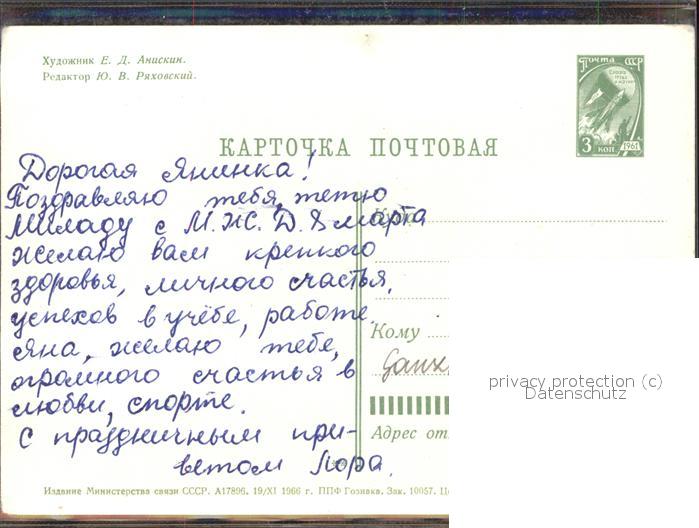 Художник Е. Д. Анискин.
Редактор Ю. В. Ряховский.
Почта СССР
3 коп 1961
КАРТОЧКА ПОЧТОВАЯ
Дорогая Янинка!
Поздравляю тебя, тетю
Миладу с М.Ж.Д. 8 марта
желаю вам крепкого
здоровья, личного счастья,
успехов в учёбе, работе,
Яна, желаю тебе,
огромного счастья в
любви, спорте.
С праздничным при-
ветом Лора.
Куда
Кому
privacy protection (c)
Datenschutz
Адрес от
Издание Министерства связи СССР. А17896. 19/XI 1966 г. ППФ Гознака. Зак. 10057. Ц